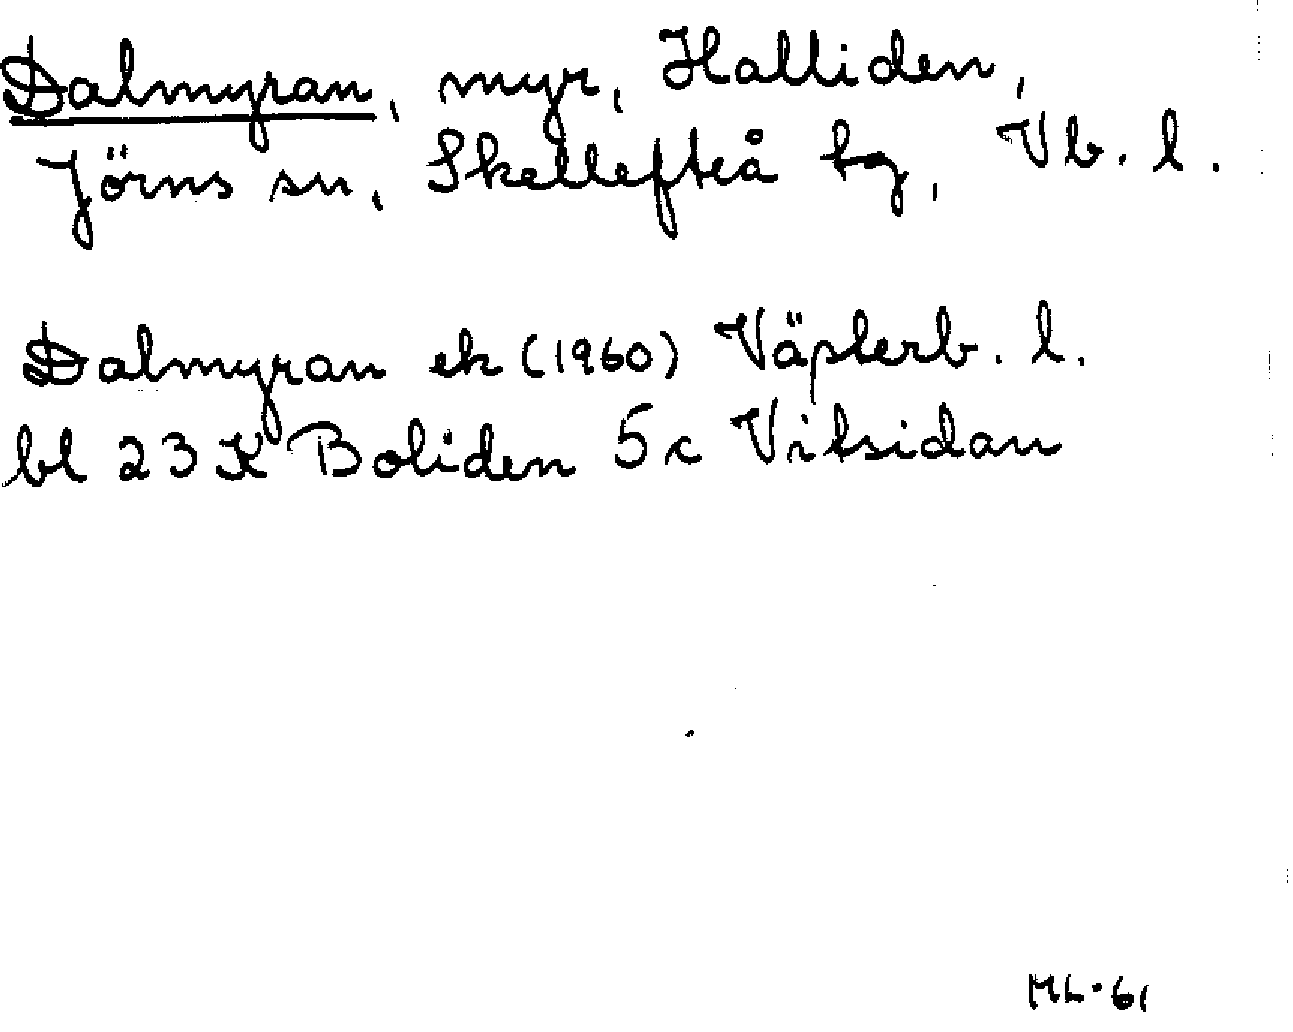 Dalmyran, myr, Halliden,
Jörns sn, Skellefteå tg, Vb. l.
Dalmyran ek (1960) Västerb. l.
bl 23 K Boliden 5c Vitsidan
ML·61